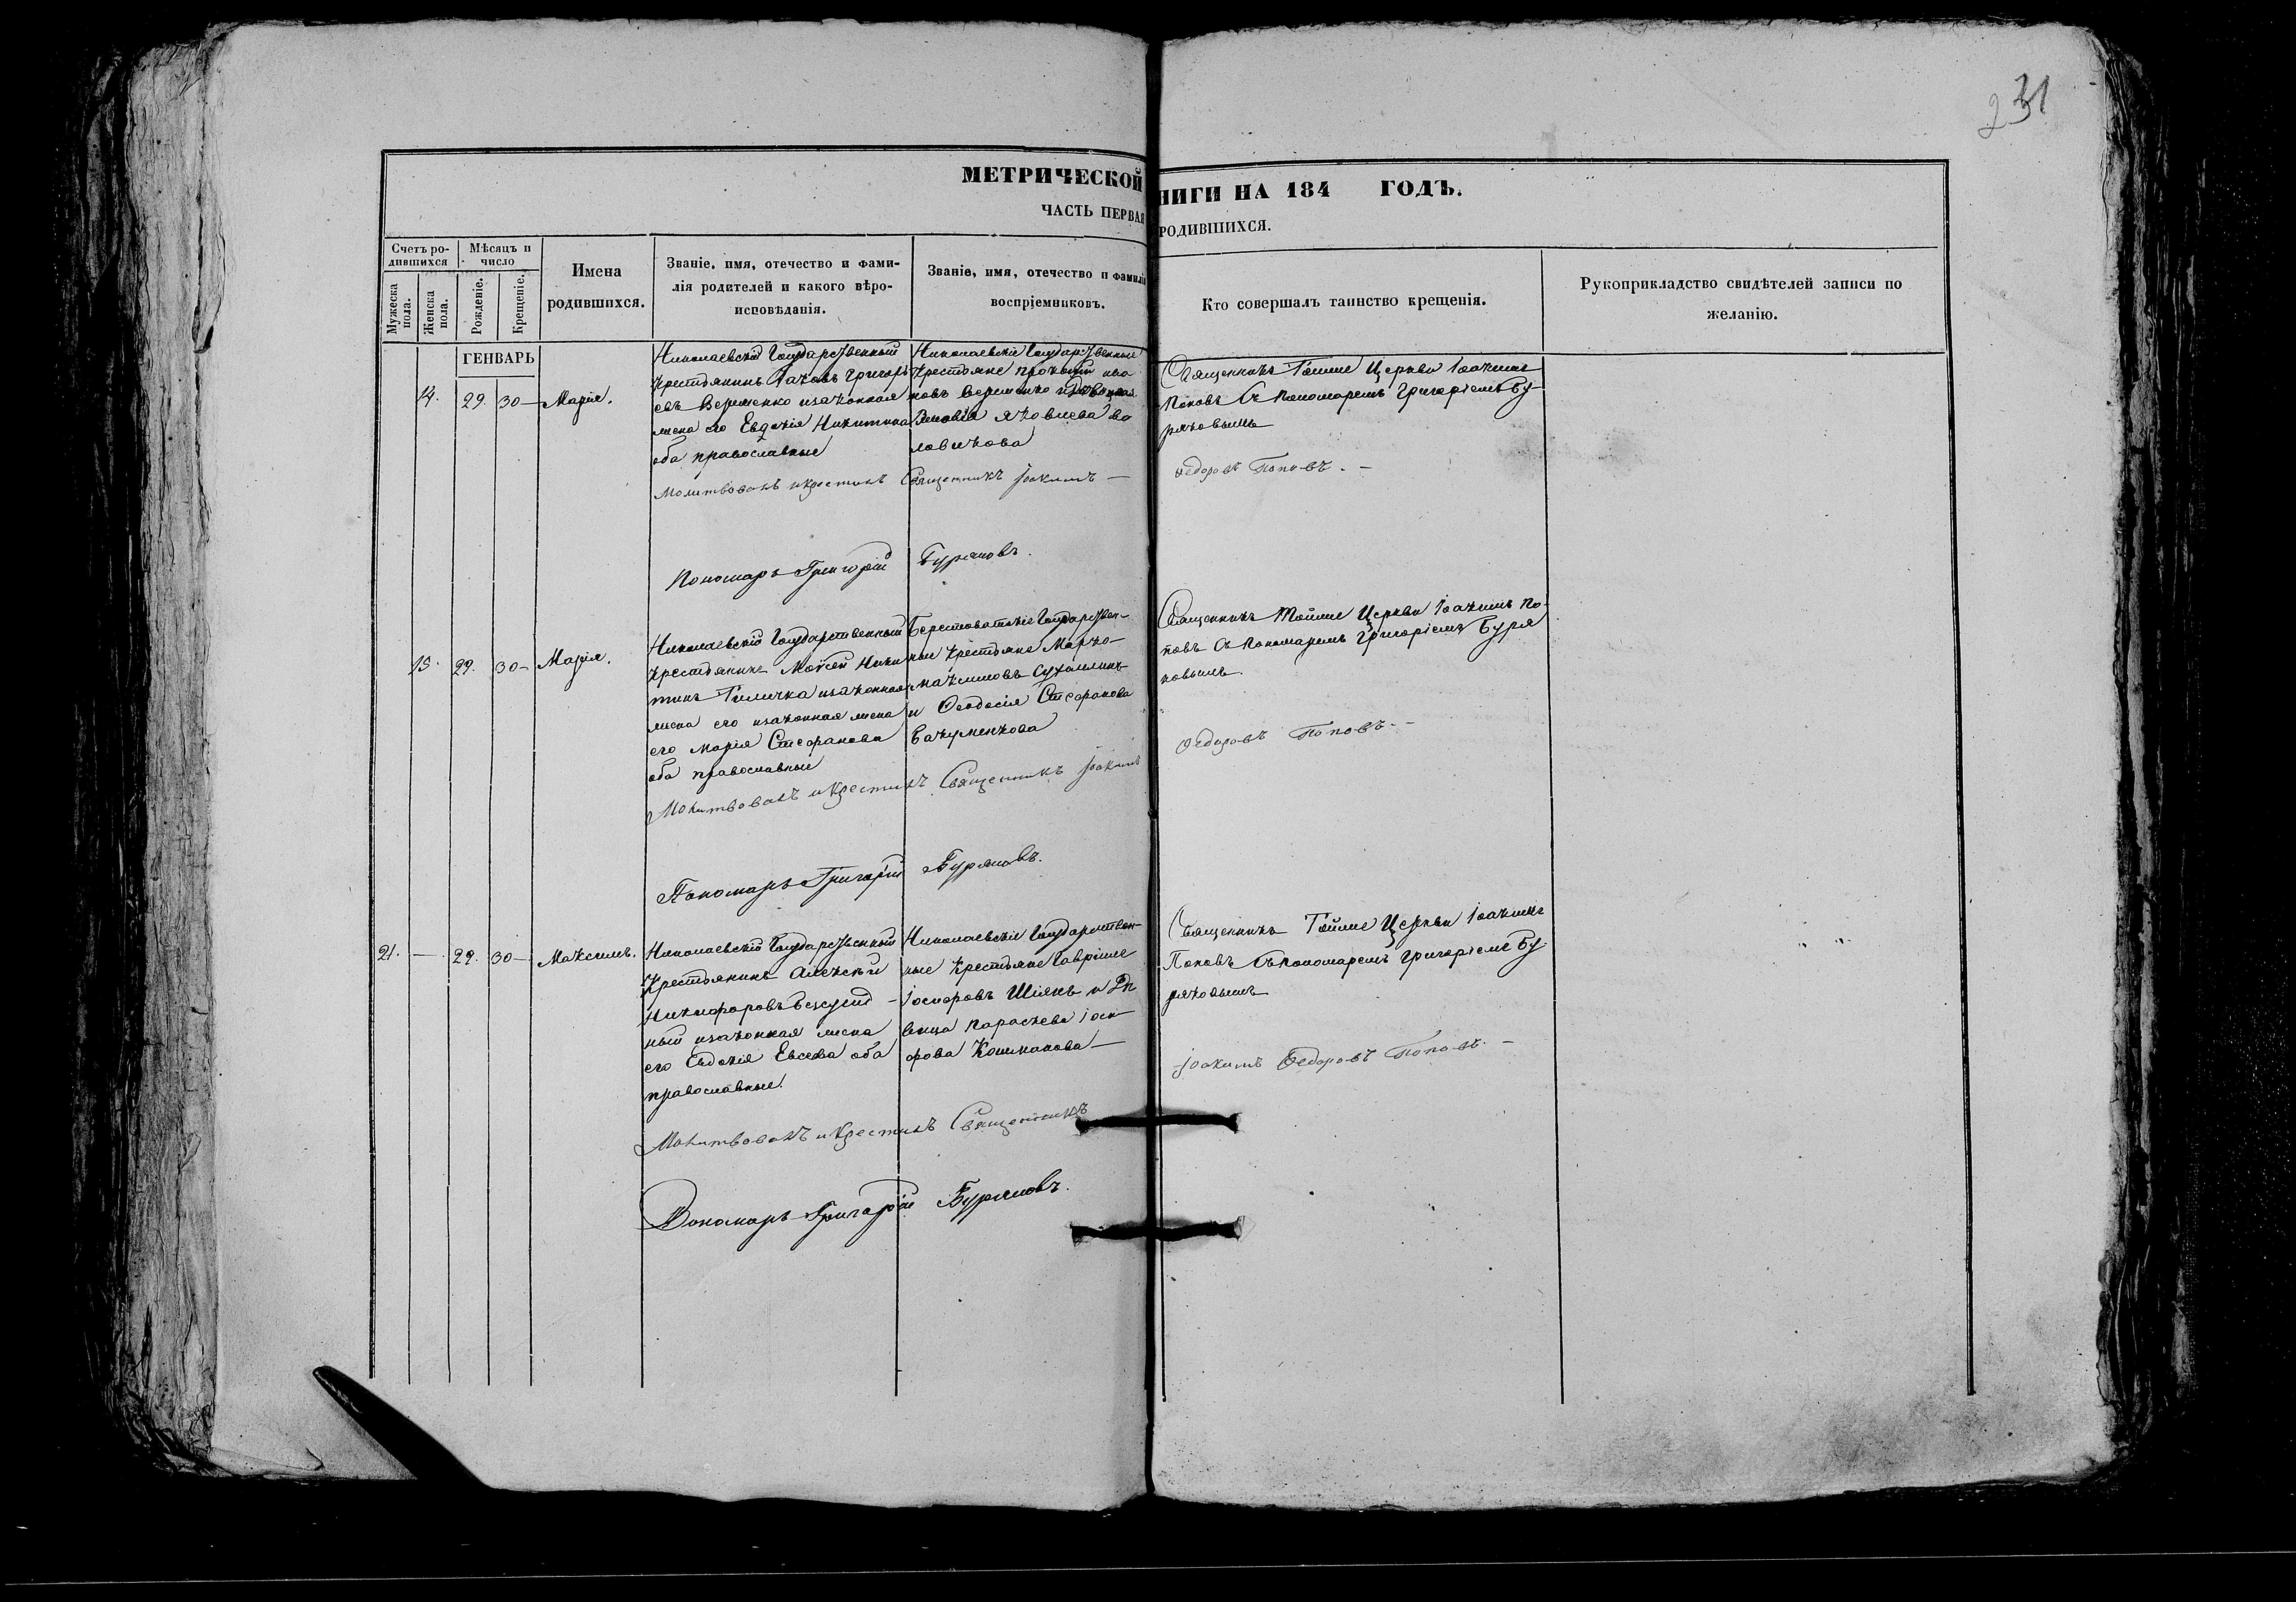 231
МЕТРИЧЕСКОЙ
НИГИ НА 184 ГОДЪ.
ЧАСТЬ ПЕРВАЯ
РОДИВШИХСЯ.
Счетъ ро-
дившихся
Мѣсяцъ и
число
Мужеска
пола.
Женска
пола.
Рожденіе.
Крещеніе.
Имена
родившихся.
Званіе, имя, отечество и фами-
лія родителей и какого вѣро-
исповѣданія.
Званіе, имя, отечество и фамилія
воспріемниковъ.
Кто совершалъ таинство крещенія.
Рукоприкладство свидѣтелей записи по
желанію.
ГЕНВАРЬ
14. 29. 30 — Марія.
Николаевскій Государственный
Крестьянинъ Григорь
евъ Веременко изаконная
жена его Евдокія Никитина
оба православные
Николаевскіе Государственные
Крестьяне Прокофій ива
новъ Веременко
Яковлева
Священникъ Тойже Церкви Іоакимъ
Поповъ Съ Пономаремъ Григоріемъ Бу-
ряковымъ
Молитвовалъ икрестилъ Священникъ Іоакимъ —
Федоровъ Поповъ. —
Пономарь Григорій Буряковъ.
15. 29. 30 — Марія.
Николаевскій Государственный
Крестьянинъ Моѵсей Ники
тинъ изаконная
жена его изаконная жена
его Марія Стефанова
оба православные
Берестоватскіе Государствен-
ные Крестьяне Марко
Максимовъ
и Феодосія Стефанова
Бакуменкова
Священникъ Тойже Церкви Іоакимъ По-
повъ Съ Пономаремъ Григоріемъ Буря
ковымъ
Молитвовалъ икрестилъ Священникъ Іоакимъ
Федоровъ Поповъ. —
Пономарь Григорій Буряковъ.
21. — 29. 30 — Максимъ.
Николаевскій Государственный
Крестьянинъ Алексѣй
Никифоровъ
ный изаконная жена
его Евдокія Евсеева оба
православные.
Николаевскіе Государствен-
ные Крестьяне Гавріиле
Іосифовъ Шіянъ и Дѣ
вица Параскева Іоси
фова Кошманова —
Священникъ Тойже Церкви Іоакимъ
Поповъ Съ Пономаремъ Григоріемъ Бу-
ряковымъ
Молитвовалъ икрестилъ Священникъ
Іоакимъ Федоровъ Поповъ. —
Пономарь Григорій Буряковъ.